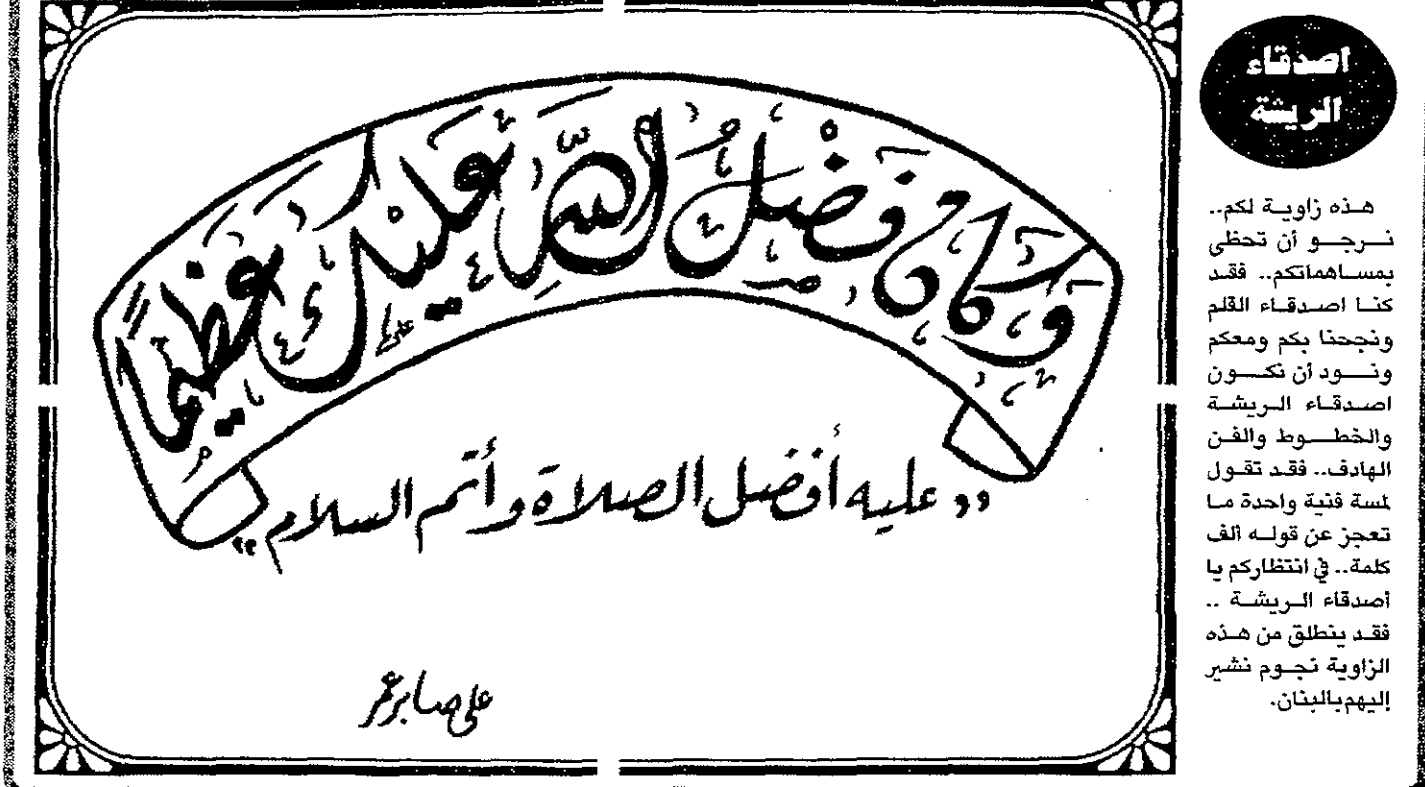 اصدقاء
الريشة
هذه زاوية لكم..
نرجو أن تحظى
بمساهماتكم.. فقد
كنا اصدقاء القلم
ونجحنا بكم ومعكم
ونود أن نكون
اصدقاء الريشة
والخطوط والفن
الهادف.. فقد تقول
لمسة فنية واحدة ما
تعجز عن قوله ألف
كلمة.. في انتظاركم يا
أصدقاء الريشة ..
فقد ينطلق من هذه
الزاوية نجوم نشير
إليهم بالبنان.
وَكَانَ فَضْلُ اللَّهِ عَلَيْكَ عَظِيمًا
"عليه أفضل الصلاة وأتم السلام"
علي صابر عمر